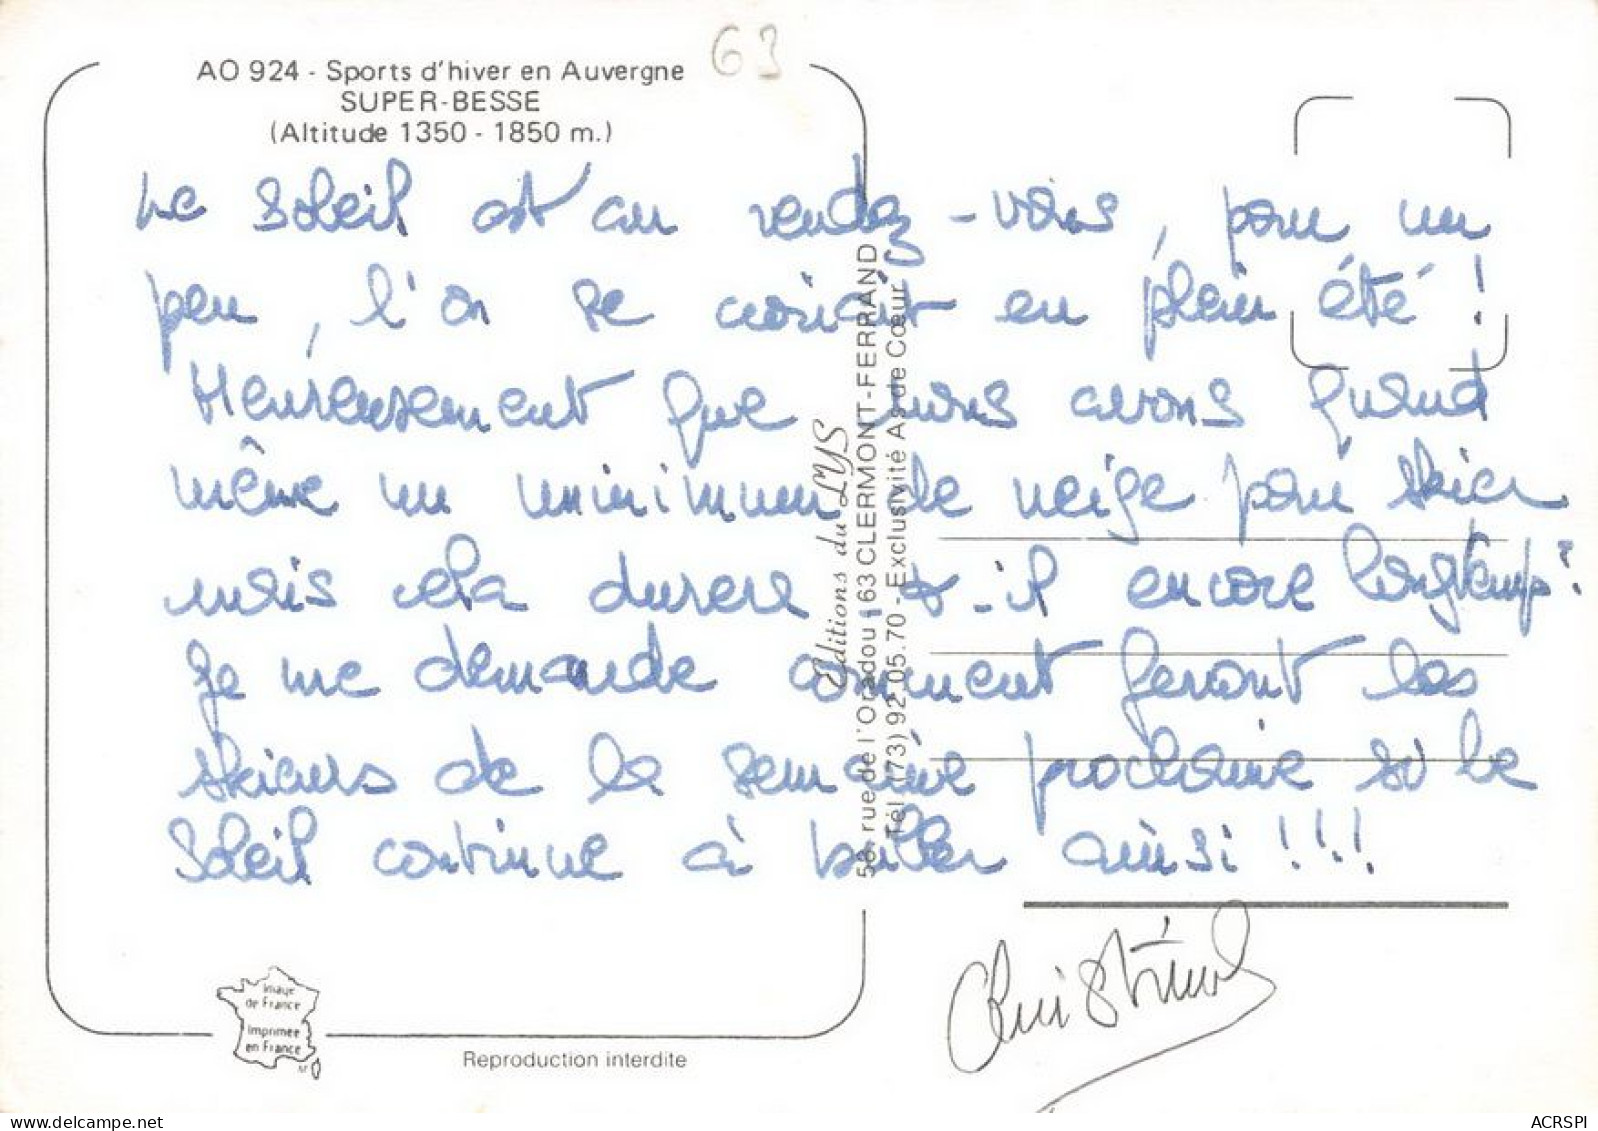 63
AO 924 - Sports d'hiver en Auvergne
SUPER-BESSE
(Altitude 1350 - 1850 m.)
Le soleil est au rendez-vous, pour un
peu, l'on se croirait en plein été !
Heureusement que nous avons quand
même un minimum de neige pour skier
mais cela durera t-il encore longtemps?
Je me demande comment feront les
skieurs de la semaine prochaine si le
soleil continue à briller ainsi !!!
Christine
Editions du LYS
58, rue de l'Oradou - 63 CLERMONT-FERRAND
Tél. (73) 92.05.70 - Exclusivité As de Cœur
Image
de France
Imprimée
en France
Reproduction interdite
ACRSPI